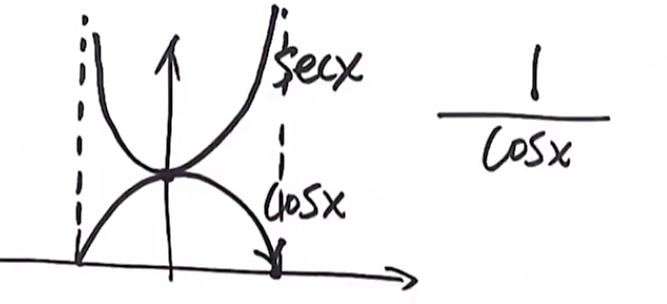 secx
cosx
1
cosx